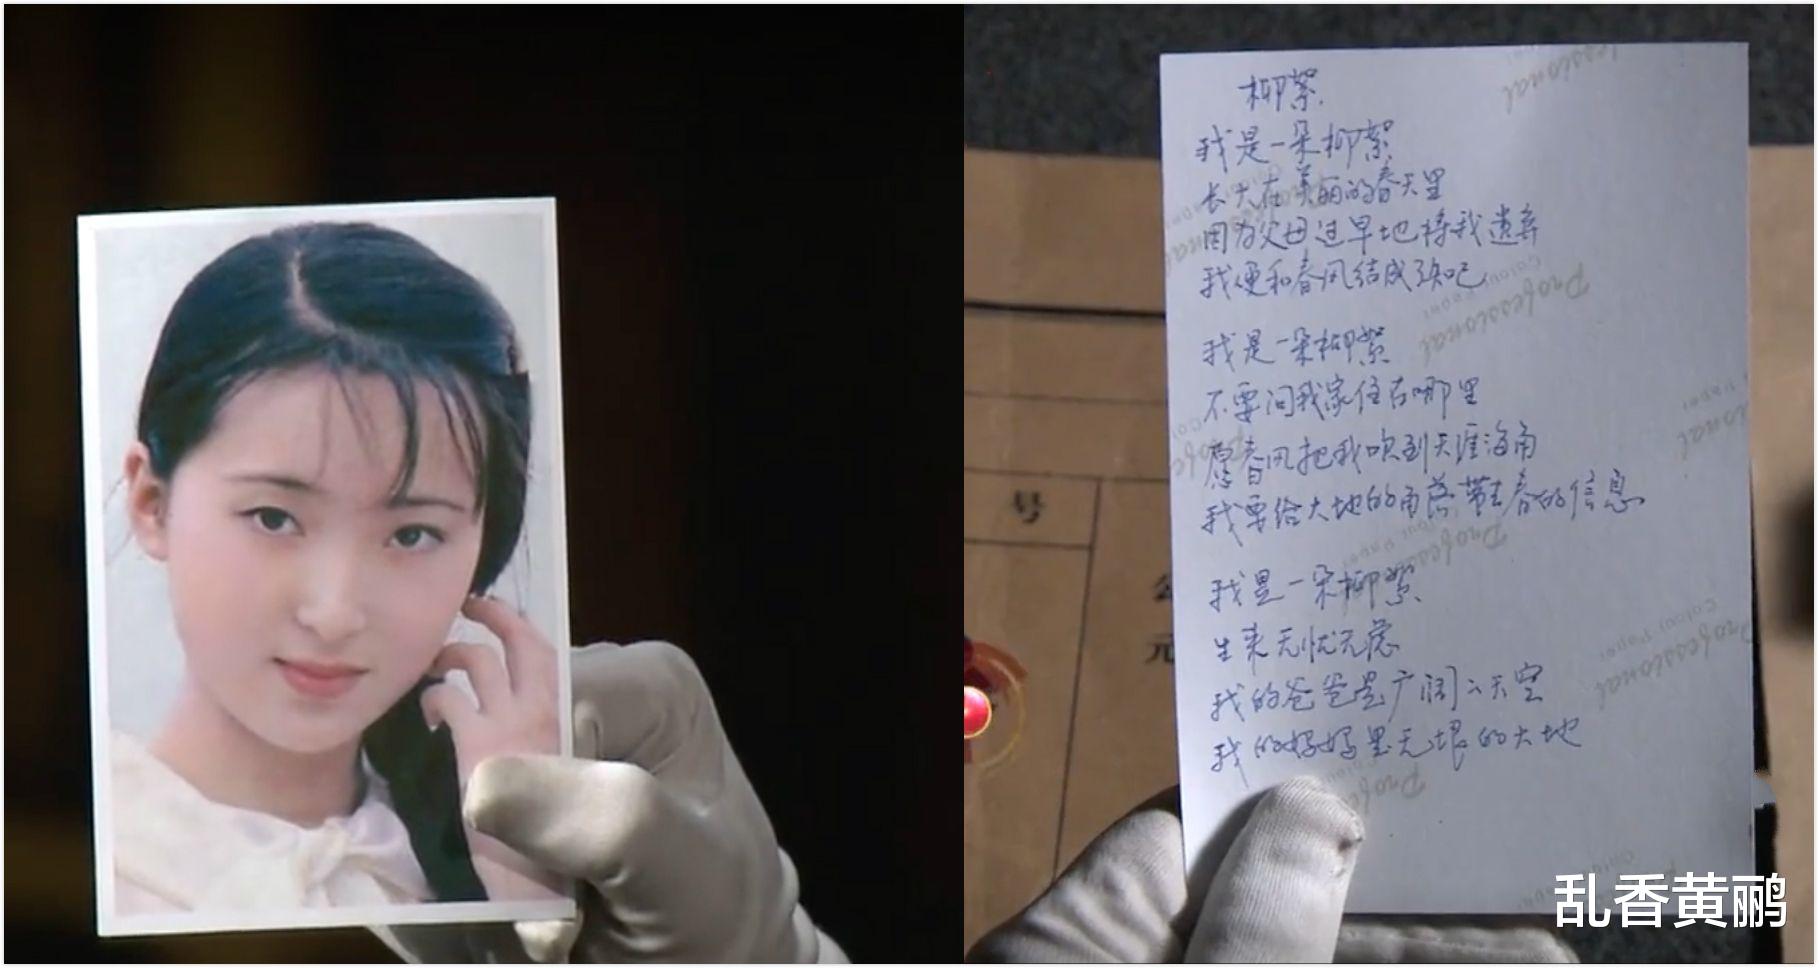 柳絮
我是一朵柳絮
长大在美丽的春天里
因为父母过早地将我遗弃
我便和春风结成知己
我是一朵柳絮
不要问我家住在哪里
愿春风把我吹到天涯海角
我要给大地的角落带去春的信息
我是一朵柳絮
生来无忧无虑
我的爸爸是广阔的天空
我的妈妈是无垠的大地
号
元
Professional
Colour Paper
Professional
Colour Paper
Professional
Colour Paper
乱香黄鹂